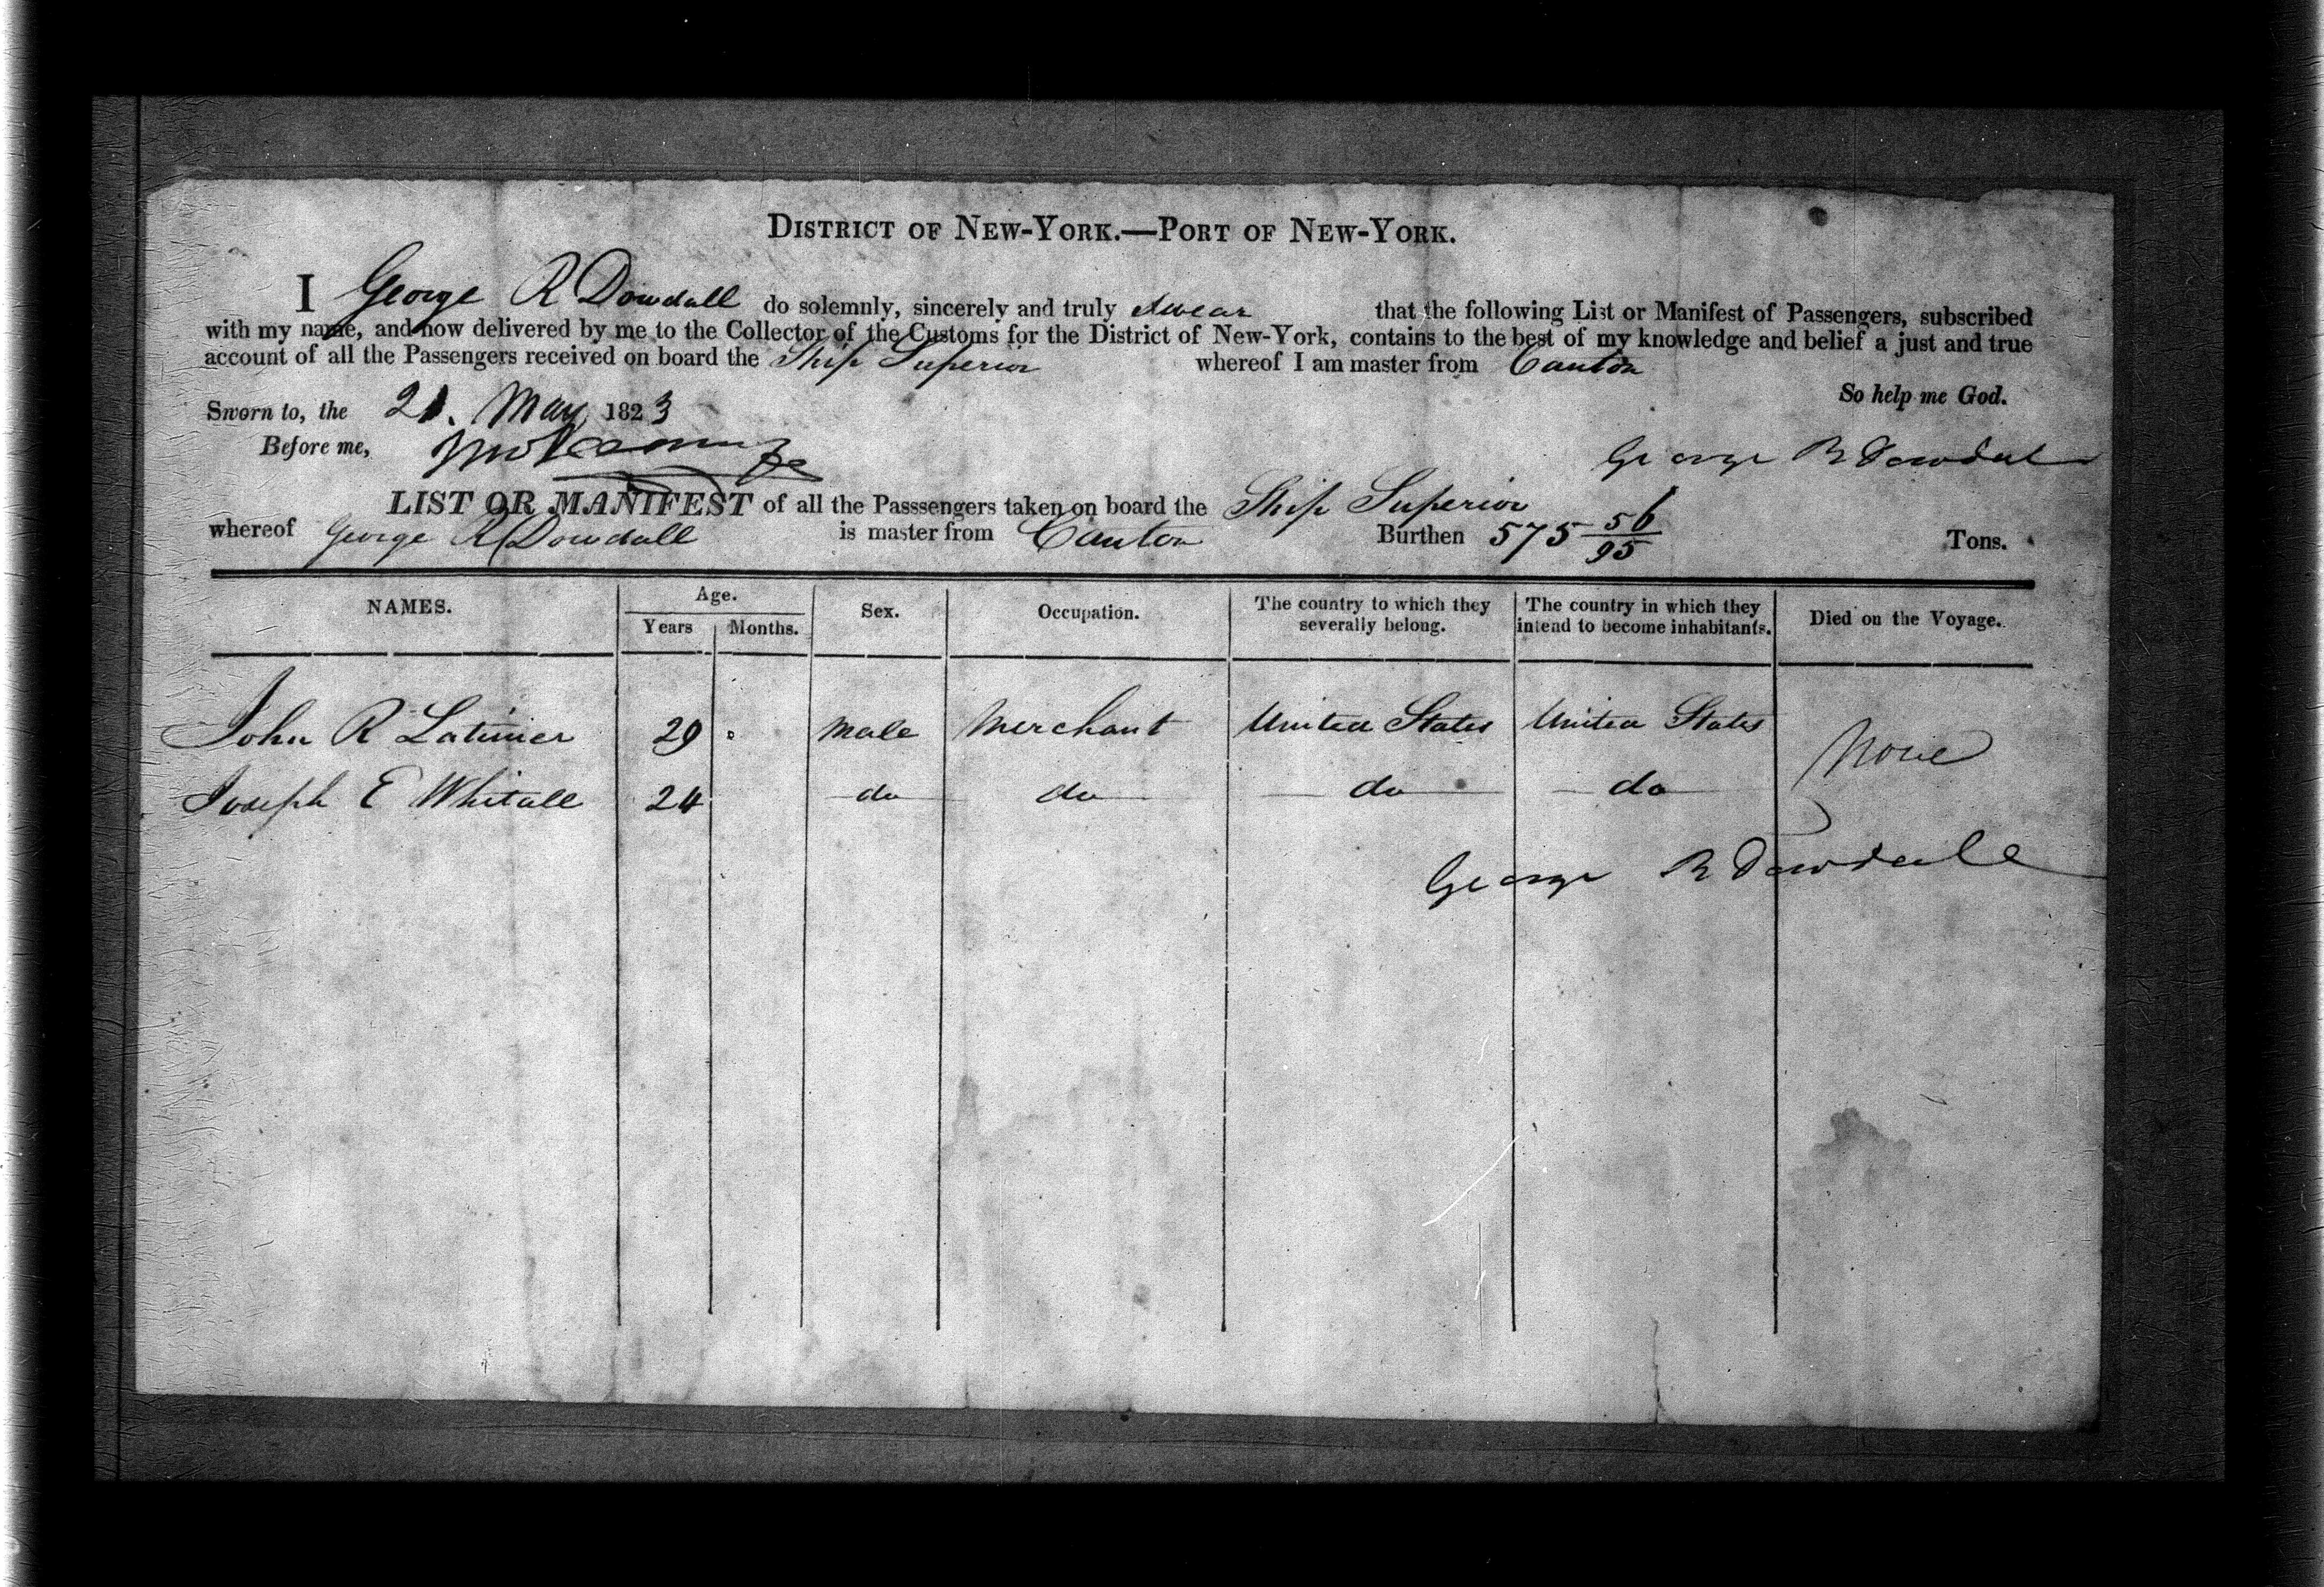 DISTRICT OF NEW-YORK.—PORT OF NEW-YORK.
I George R Dowdall do solemnly, sincerely and truly swear that the following List or Manifest of Passengers, subscribed
with my name, and now delivered by me to the Collector of the Customs for the District of New-York, contains to the best of my knowledge and belief a just and true
account of all the Passengers received on board the Ship Superior whereof I am master from Canton
So help me God.
Sworn to, the 21. May 1823
Before me,
George R Dowdall
LIST OR MANIFEST of all the Passsengers taken on board the Ship Superior
whereof George R Dowdall is master from Canton Burthen 575 56/95 Tons.
NAMES. Age. Years Months. Sex. Occupation. The country to which they severally belong. The country in which they intend to become inhabitants. Died on the Voyage.
John R Latimer 29 Male Merchant United States United States None
Joseph E Whitall 24 do do do do
George R Dowdall